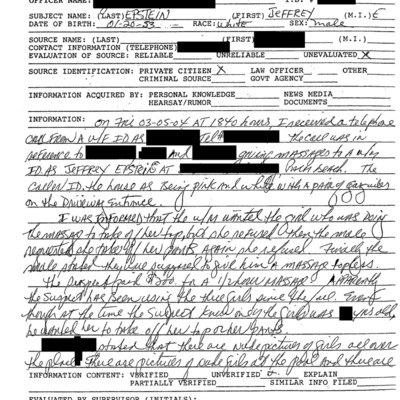 OFFICER NAME:
SUBJECT NAME: (LAST) EPSTEIN (FIRST) JEFFREY (M.I.) E
DATE OF BIRTH: 01-20-53 RACE: White SEX: male
SOURCE NAME: (LAST) (FIRST) (M.I.)
CONTACT INFORMATION (TELEPHONE)
EVALUATION OF SOURCE: RELIABLE UNRELIABLE UNEVALUATED X
SOURCE IDENTIFICATION: PRIVATE CITIZEN X LAW OFFICER OTHER
CRIMINAL SOURCE GOVT AGENCY
INFORMATION ACQUIRED BY: PERSONAL KNOWLEDGE NEWS MEDIA
HEARSAY/RUMOR DOCUMENTS
INFORMATION: on Fri 03-05-04 at 1840 hours I received a telephone
call from a W/F ID as Tel# The call was in
reference to and giving massages to a w/m
ID as JEFFREY EPSTEIN at Beach. The
caller ID. the house as being pink and white with a pair of
on the Driveway entrance.
I was informed that the w/m wanted the girl who was doing
the massage to take off her top, but she refused then the male
requested she take off her pants again she refused. the
male stated they were supposed to give him a massage topless.
The suspect paid $300. for a 1/2 hour massage. Apparently
the suspect has been using the three girls since the
though at the time the suspect knew only the girls was years old
he wanted her to take off her top or her pants.
stated that there are nude pictures of girls all over
the place. There are pictures of nude girls at the pool and there are
INFORMATION CONTENT: VERIFIED UNVERIFIED EXPLAIN
PARTIALLY VERIFIED SIMILAR INFO FILED
EVALUATED BY SUPERVISOR (INITIALS):